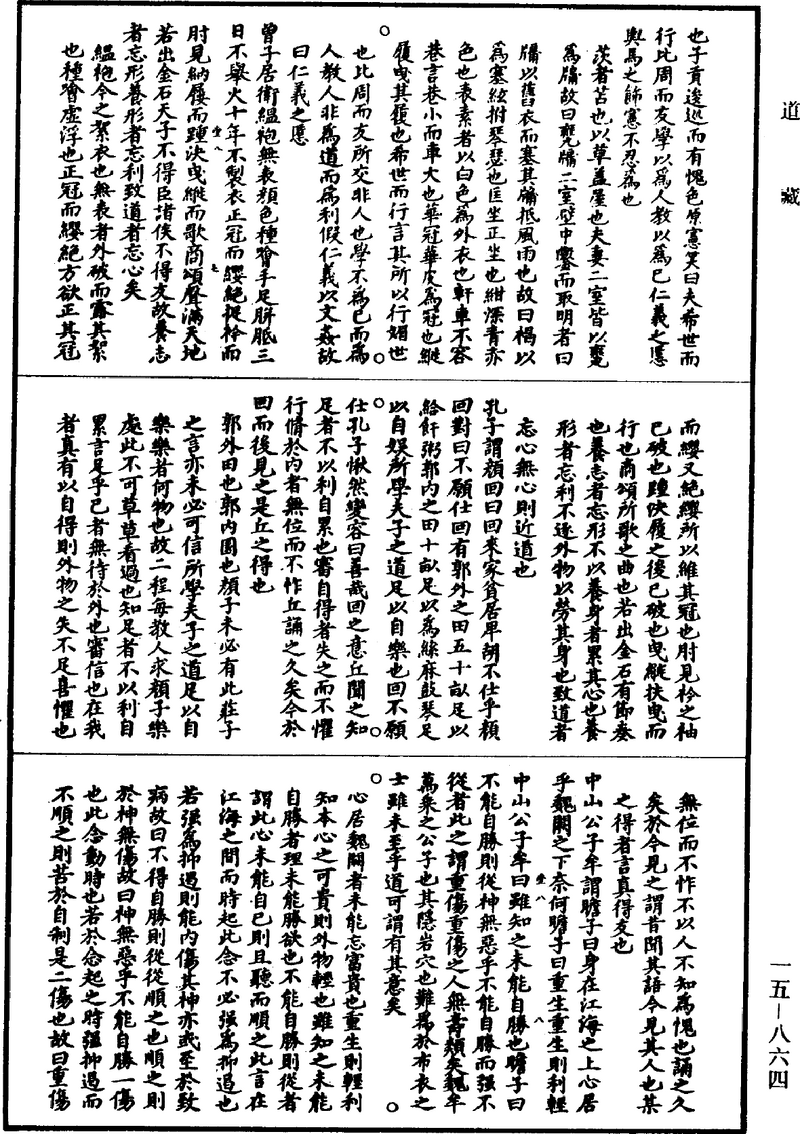 道藏
也子貢逡巡而有愧色原憲笑曰夫希世而
行比周而友學以為人教以為己仁義之慝
輿馬之飾憲不忍為也
茨者苫也以草蓋屋也夫妻二室皆以甕
為牖故曰甕牖二室壁中鑿而取明者曰
牖以舊衣而塞其牖抵風雨也故曰褐以
為塞絃拊琴瑟也匡坐正坐也紺深青赤
色也表素者以白色為外衣也軒車不容
巷言巷小而車大也華冠華皮為冠也縰
履曳其履也希世而行言其所以行媚世
也比周而友所交非人也學不為己而為
人教人非為道而為利假仁義以文姦故
曰仁義之慝
曾子居衛縕袍無表顏色種噲手足胼胝三
日不舉火十年不製衣正冠而纓絕捉衿而
肘見納屨而踵決曳縰而歌商頌聲滿天地
若出金石天子不得臣諸侯不得友故養志
者忘形養形者忘利致道者忘心矣
縕袍今之絮衣也無表者外破而露其絮
也種噲虛浮也正冠而纓絕方欲正其冠
而纓又絕纓所以維其冠也肘見衿之袖
已破也踵決履之後已破也曳縰扶曳而
行也商頌所歌之曲也若出金石有節奏
也養志者忘形不以養身者累其心也養
形者忘利不逐外物以勞其身也致道者
忘心無心則近道也
孔子謂顏回曰回來家貧居卑胡不仕乎顏
回對曰不願仕回有郭外之田五十畝足以
給飦粥郭內之田十畝足以為絲麻鼓琴足
以自娛所學夫子之道足以自樂也回不願
仕孔子愀然變容曰善哉回之意丘聞之知
足者不以利自累也審自得者失之而不懼
行脩於內者無位而不怍丘誦之久矣今於
回而後見之是丘之得也
郭外田也郭內園也顏子未必有此莊子
之言亦未必可信所學夫子之道足以自
樂樂者何物也故二程每教人求顏子樂
處此不可草草看過也知足者不以利自
累言足乎己者無待於外也審信也在我
者真有以自得則外物之失不足喜懼也
無位而不怍不以人不知為愧也誦之久
矣於今見之謂昔聞其語今見其人也某
之得者言真得友也
中山公子牟謂瞻子曰身在江海之上心居
乎魏闕之下奈何瞻子曰重生重生則利輕
中山公子牟曰雖知之未能自勝也瞻子曰
不能自勝則從神無惡乎不能自勝而強不
從者此之謂重傷重傷之人無壽類矣魏牟
萬乘之公子也其隱岩穴也難為於布衣之
士雖未至乎道可謂有其意矣
心居魏闕者未能忘富貴也重生則輕利
知本心之可貴則外物輕也雖知之未能
自勝者理未能勝欲也不能自勝則從者
謂此心未能自已則且聽而順之此言在
江海之間而時起此念不必強為抑遏也
若強為抑遏則能內傷其神亦或至於致
病故曰不得自勝則從從順之也順之則
於神無傷故曰神無惡乎不能自勝一傷
也此念動時也若於念起之時強抑遏而
不順之則苦於自制是二傷也故曰重傷
一五—八六四